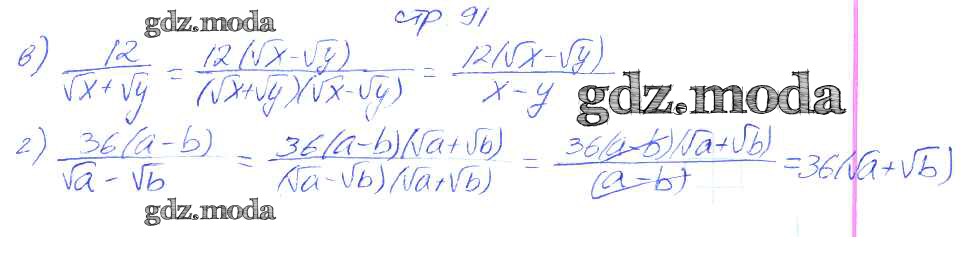 стр. 91
gdz.moda
в) 12/(√x+√y) = 12(√x-√y)/((√x+√y)(√x-√y)) = 12(√x-√y)/(x-y)
gdz.moda
г) 36(a-b)/(√a-√b) = 36(a-b)(√a+√b)/((√a-√b)(√a+√b)) = 36(a-b)(√a+√b)/(a-b) = 36(√a+√b)
gdz.moda